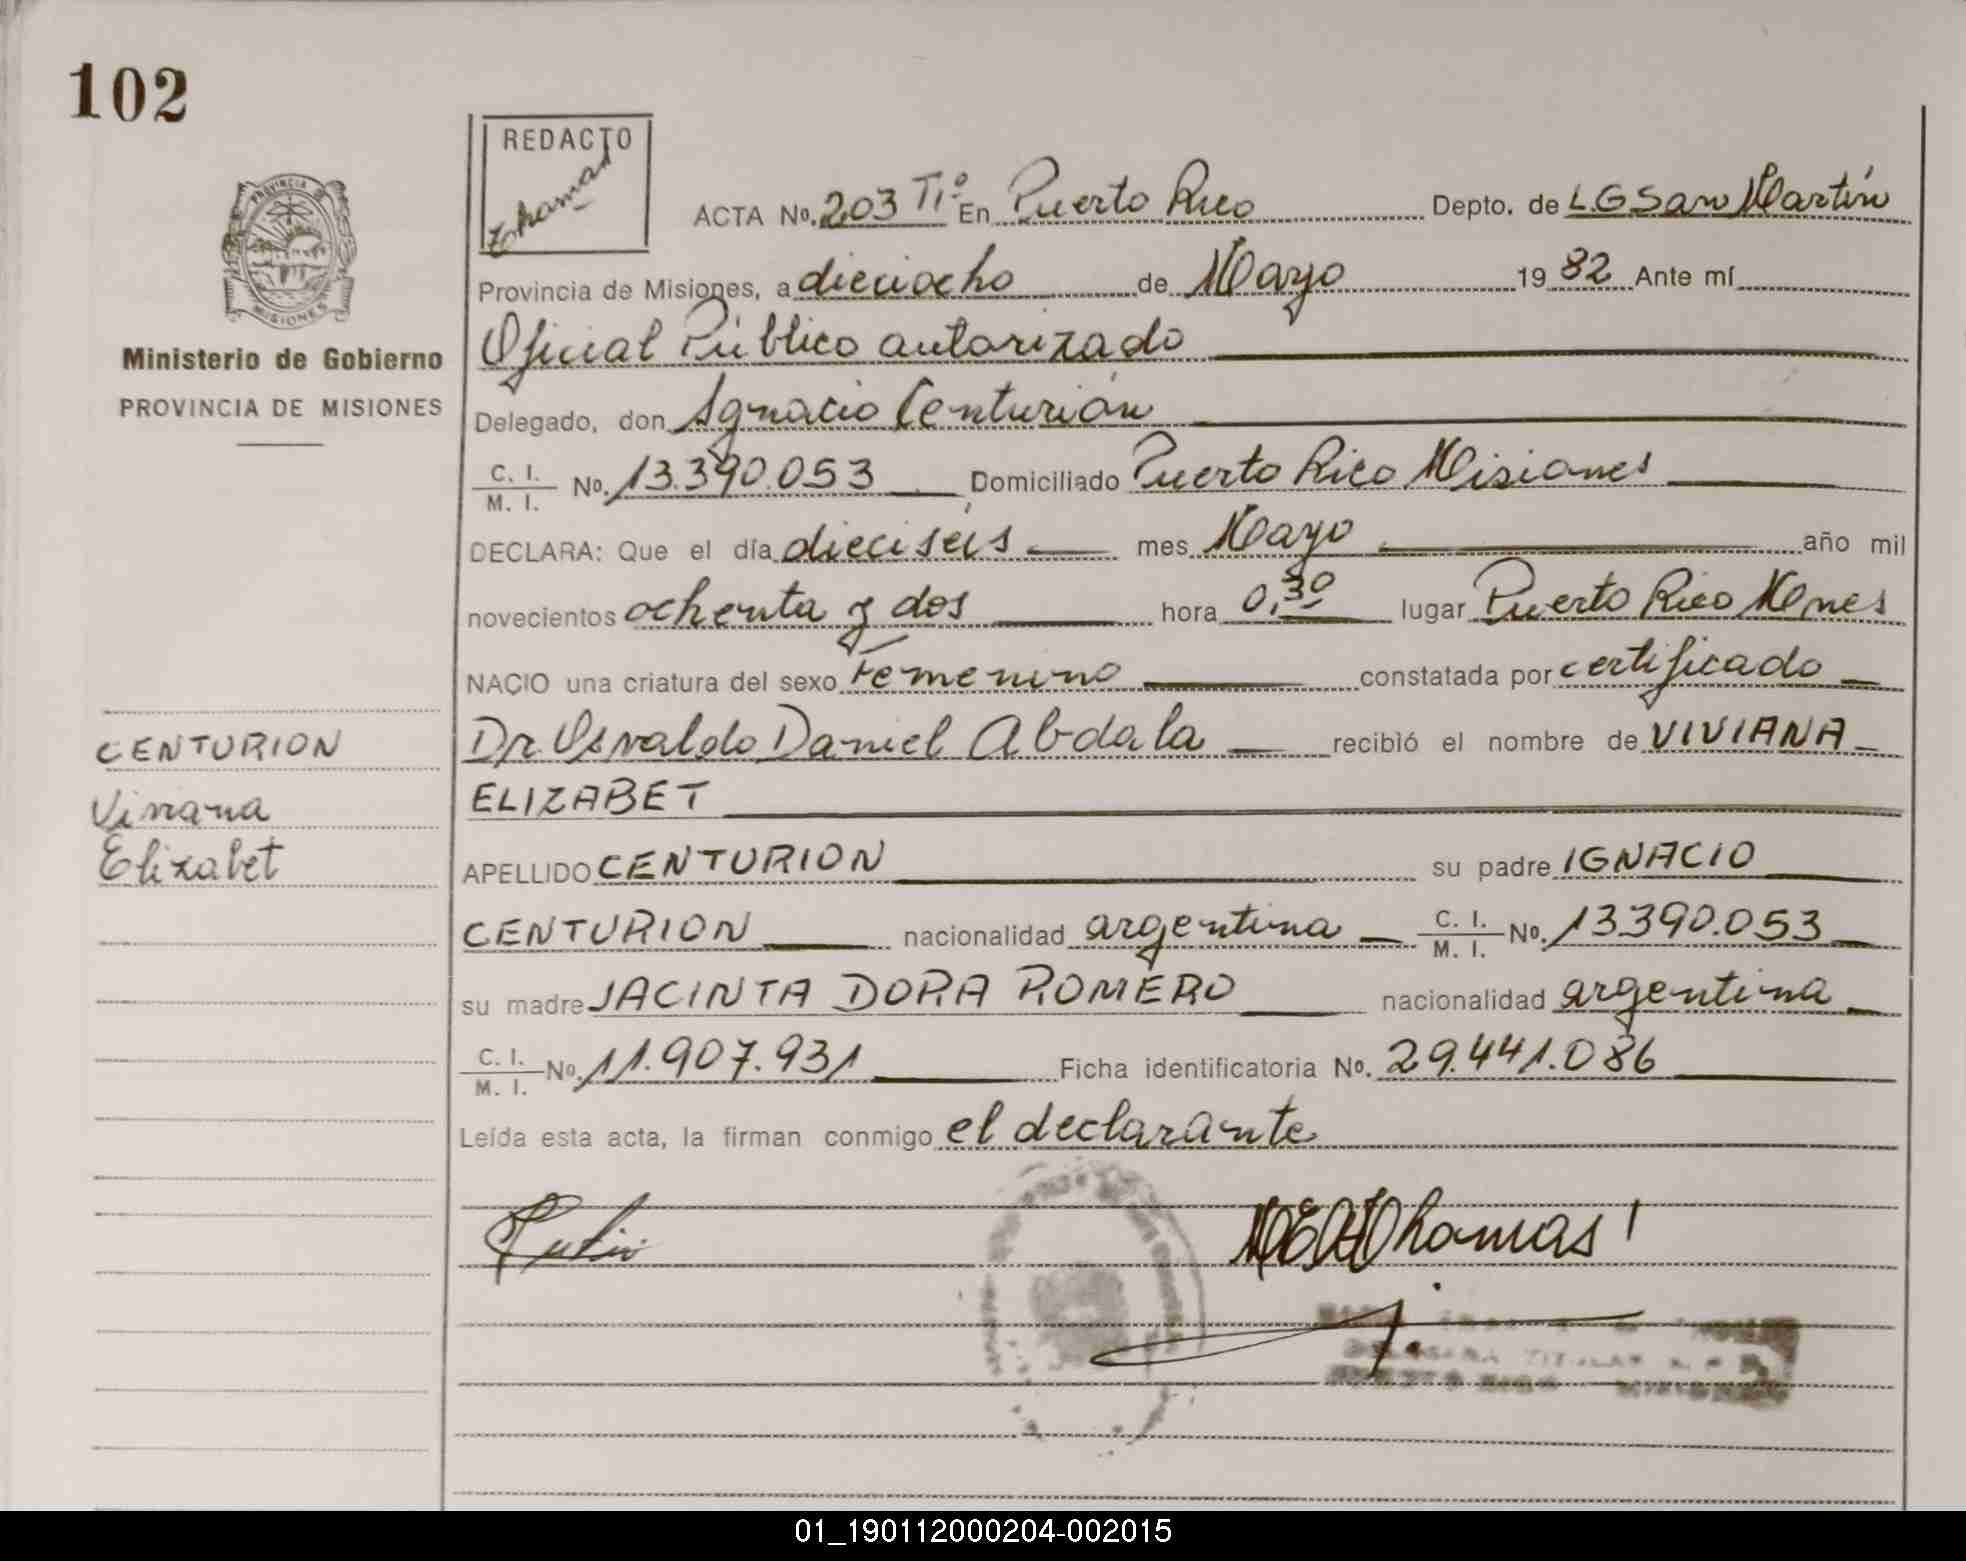 102
REDACTO
Thomas
PROVINCIA DE
MISIONES
Ministerio de Gobierno
PROVINCIA DE MISIONES
ACTA No. 203 Tº En Puerto Rico Depto. de L.G San Martín
Provincia de Misiones, a dieciocho de Mayo 19 82 Ante mí
Oficial Público autorizado
Delegado, don Ignacio Centurión
C. I. / M. I. No. 13.390.053 Domiciliado Puerto Rico Misiones
DECLARA: Que el día dieciséis mes Mayo año mil
novecientos ochenta y dos hora 0,30 lugar Puerto Rico Mnes
NACIO una criatura del sexo Femenino constatada por certificado
Dr. Osvaldo Daniel Abdala recibió el nombre de VIVIANA
ELIZABET
APELLIDO CENTURION su padre IGNACIO
CENTURION nacionalidad argentina C. I. / M. I. No. 13.390.053
su madre JACINTA DORA ROMERO nacionalidad argentina
C. I. / M. I. No. 11.907.931 Ficha identificatoria No. 29.441.086
Leída esta acta, la firman conmigo el declarante
CENTURION
Viviana
Elizabet
Thomas
TITULAR
01_190112000204-002015